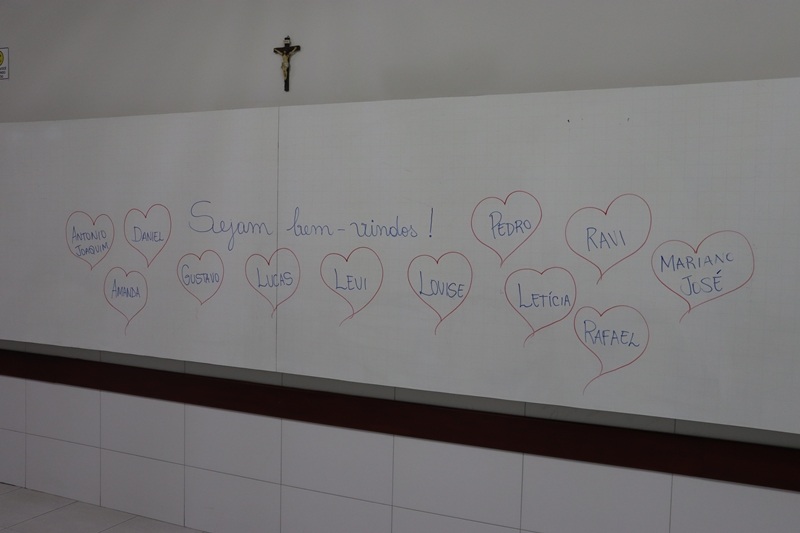 Sejam bem-vindos!
ANTONIO
JOAQUIM
DANIEL
AMANDA
GUSTAVO
LUCAS
LEVI
LOUISE
PEDRO
LETÍCIA
RAVI
RAFAEL
MARIANO
JOSÉ